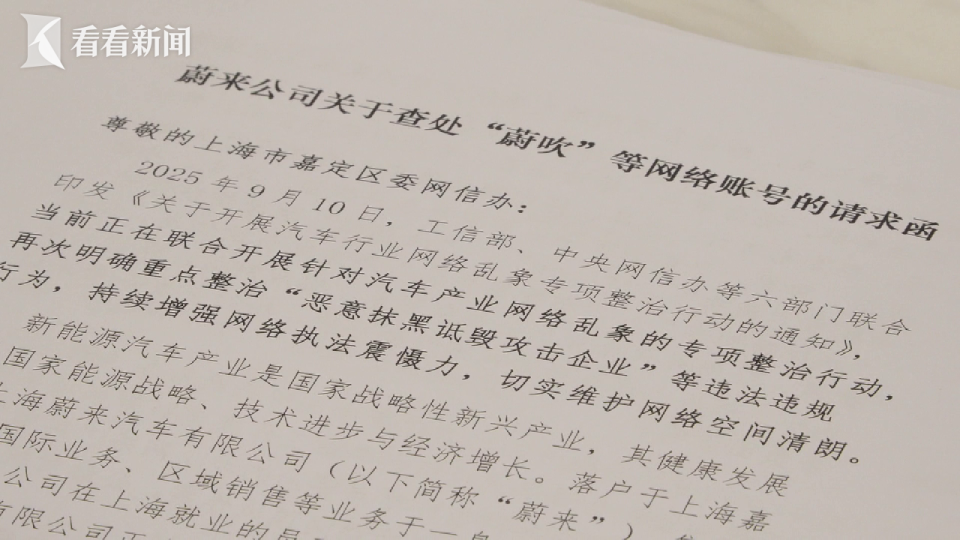 看看新闻
蔚来公司关于查处“蔚吹”等网络账号的请求函
尊敬的上海市嘉定区委网信办：
2025 年 9 月 10 日，工信部、中央网信办等六部门联合
印发《关于开展汽车行业网络乱象专项整治行动的通知》，
当前正在联合开展针对汽车产业网络乱象的专项整治行动，
再次明确重点整治“恶意抹黑诋毁攻击企业”等违法违规
行为，持续增强网络执法震慑力，切实维护网络空间清朗。
新能源汽车产业是国家战略性新兴产业，其健康发展
国家能源战略、技术进步与经济增长。落户于上海嘉
上海蔚来汽车有限公司（以下简称“蔚来”）
国际业务、区域销售等业务于一
公司在上海就业的员
有限公司